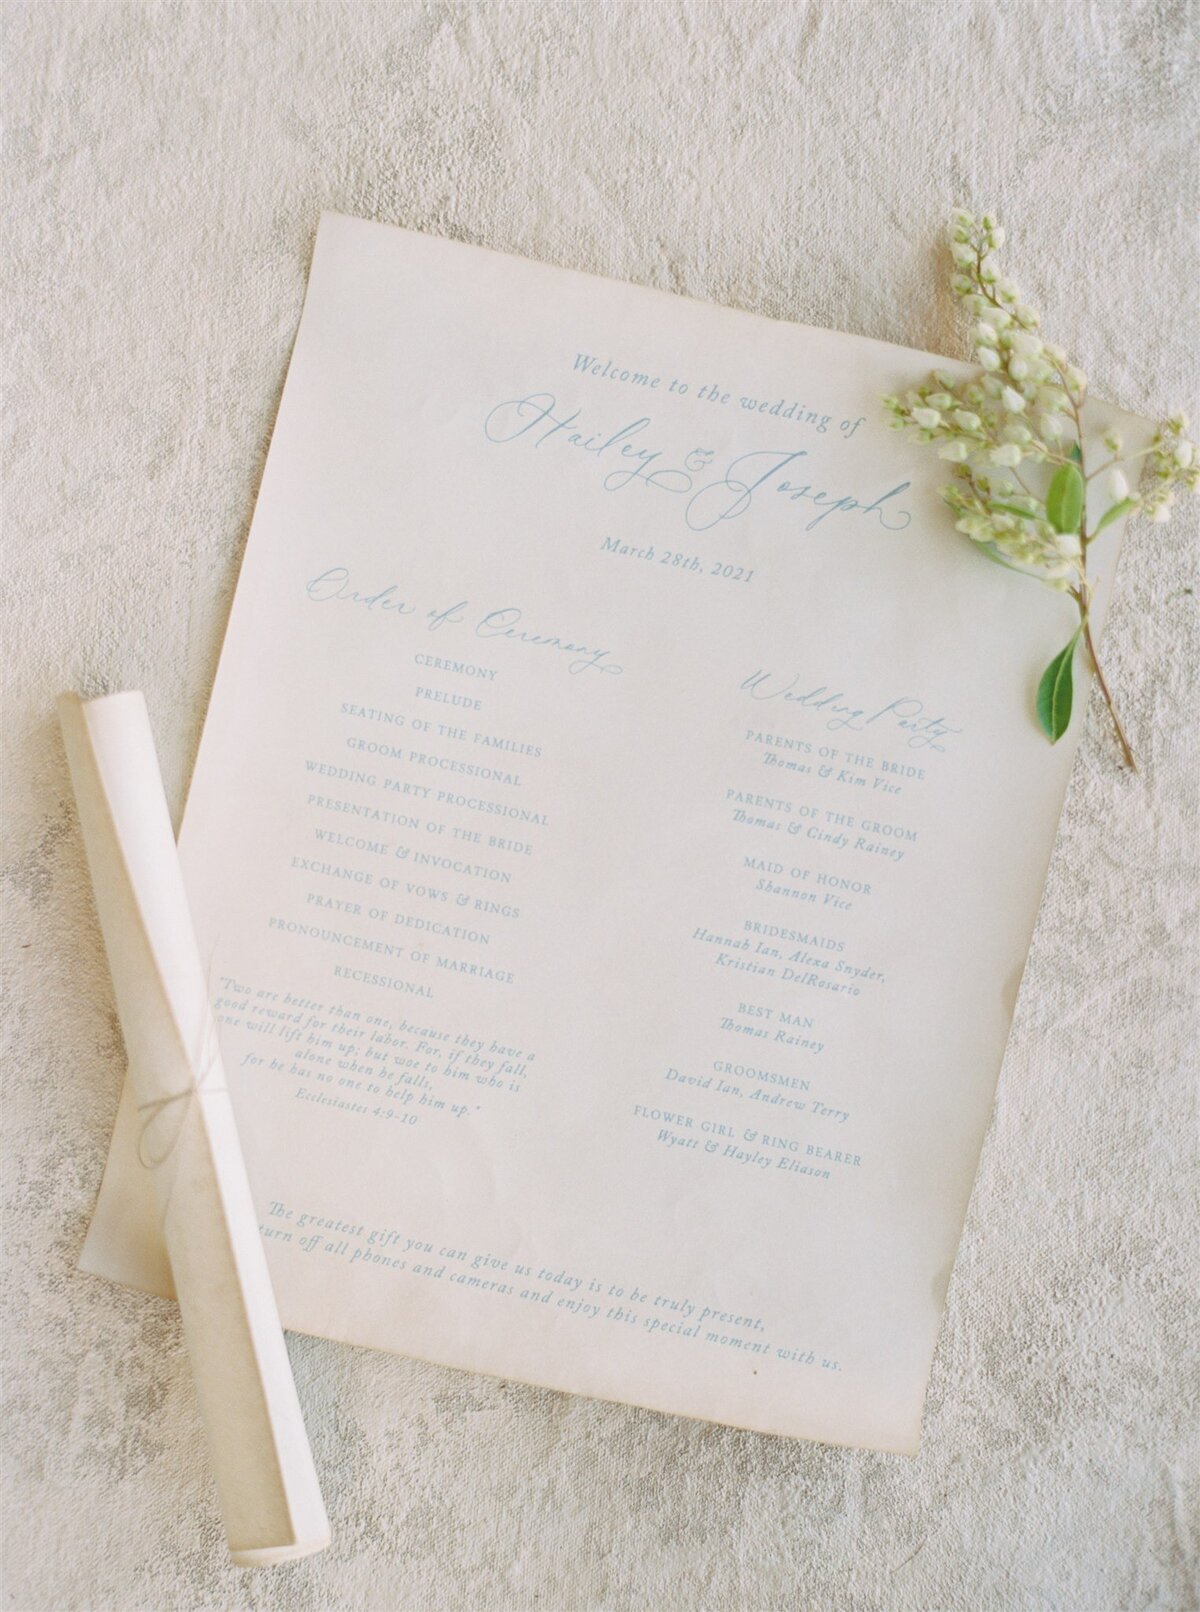 Welcome to the wedding of
Hailey & Joseph
March 28th, 2021
Order of Ceremony
CEREMONY
PRELUDE
SEATING OF THE FAMILIES
GROOM PROCESSIONAL
WEDDING PARTY PROCESSIONAL
PRESENTATION OF THE BRIDE
WELCOME & INVOCATION
EXCHANGE OF VOWS & RINGS
PRAYER OF DEDICATION
PRONOUNCEMENT OF MARRIAGE
RECESSIONAL
"Two are better than one, because they have a
good reward for their labor. For, if they fall,
one will lift him up; but woe to him who is
alone when he falls,
for he has no one to help him up."
Ecclesiastes 4:9-10
Wedding Party
PARENTS OF THE BRIDE
Thomas & Kim Vice
PARENTS OF THE GROOM
Thomas & Cindy Rainey
MAID OF HONOR
Shannon Vice
BRIDESMAIDS
Hannah Ian, Alexa Snyder,
Kristian DelRosario
BEST MAN
Thomas Rainey
GROOMSMEN
David Ian, Andrew Terry
FLOWER GIRL & RING BEARER
Wyatt & Hayley Eliason
The greatest gift you can give us today is to be truly present,
turn off all phones and cameras and enjoy this special moment with us.